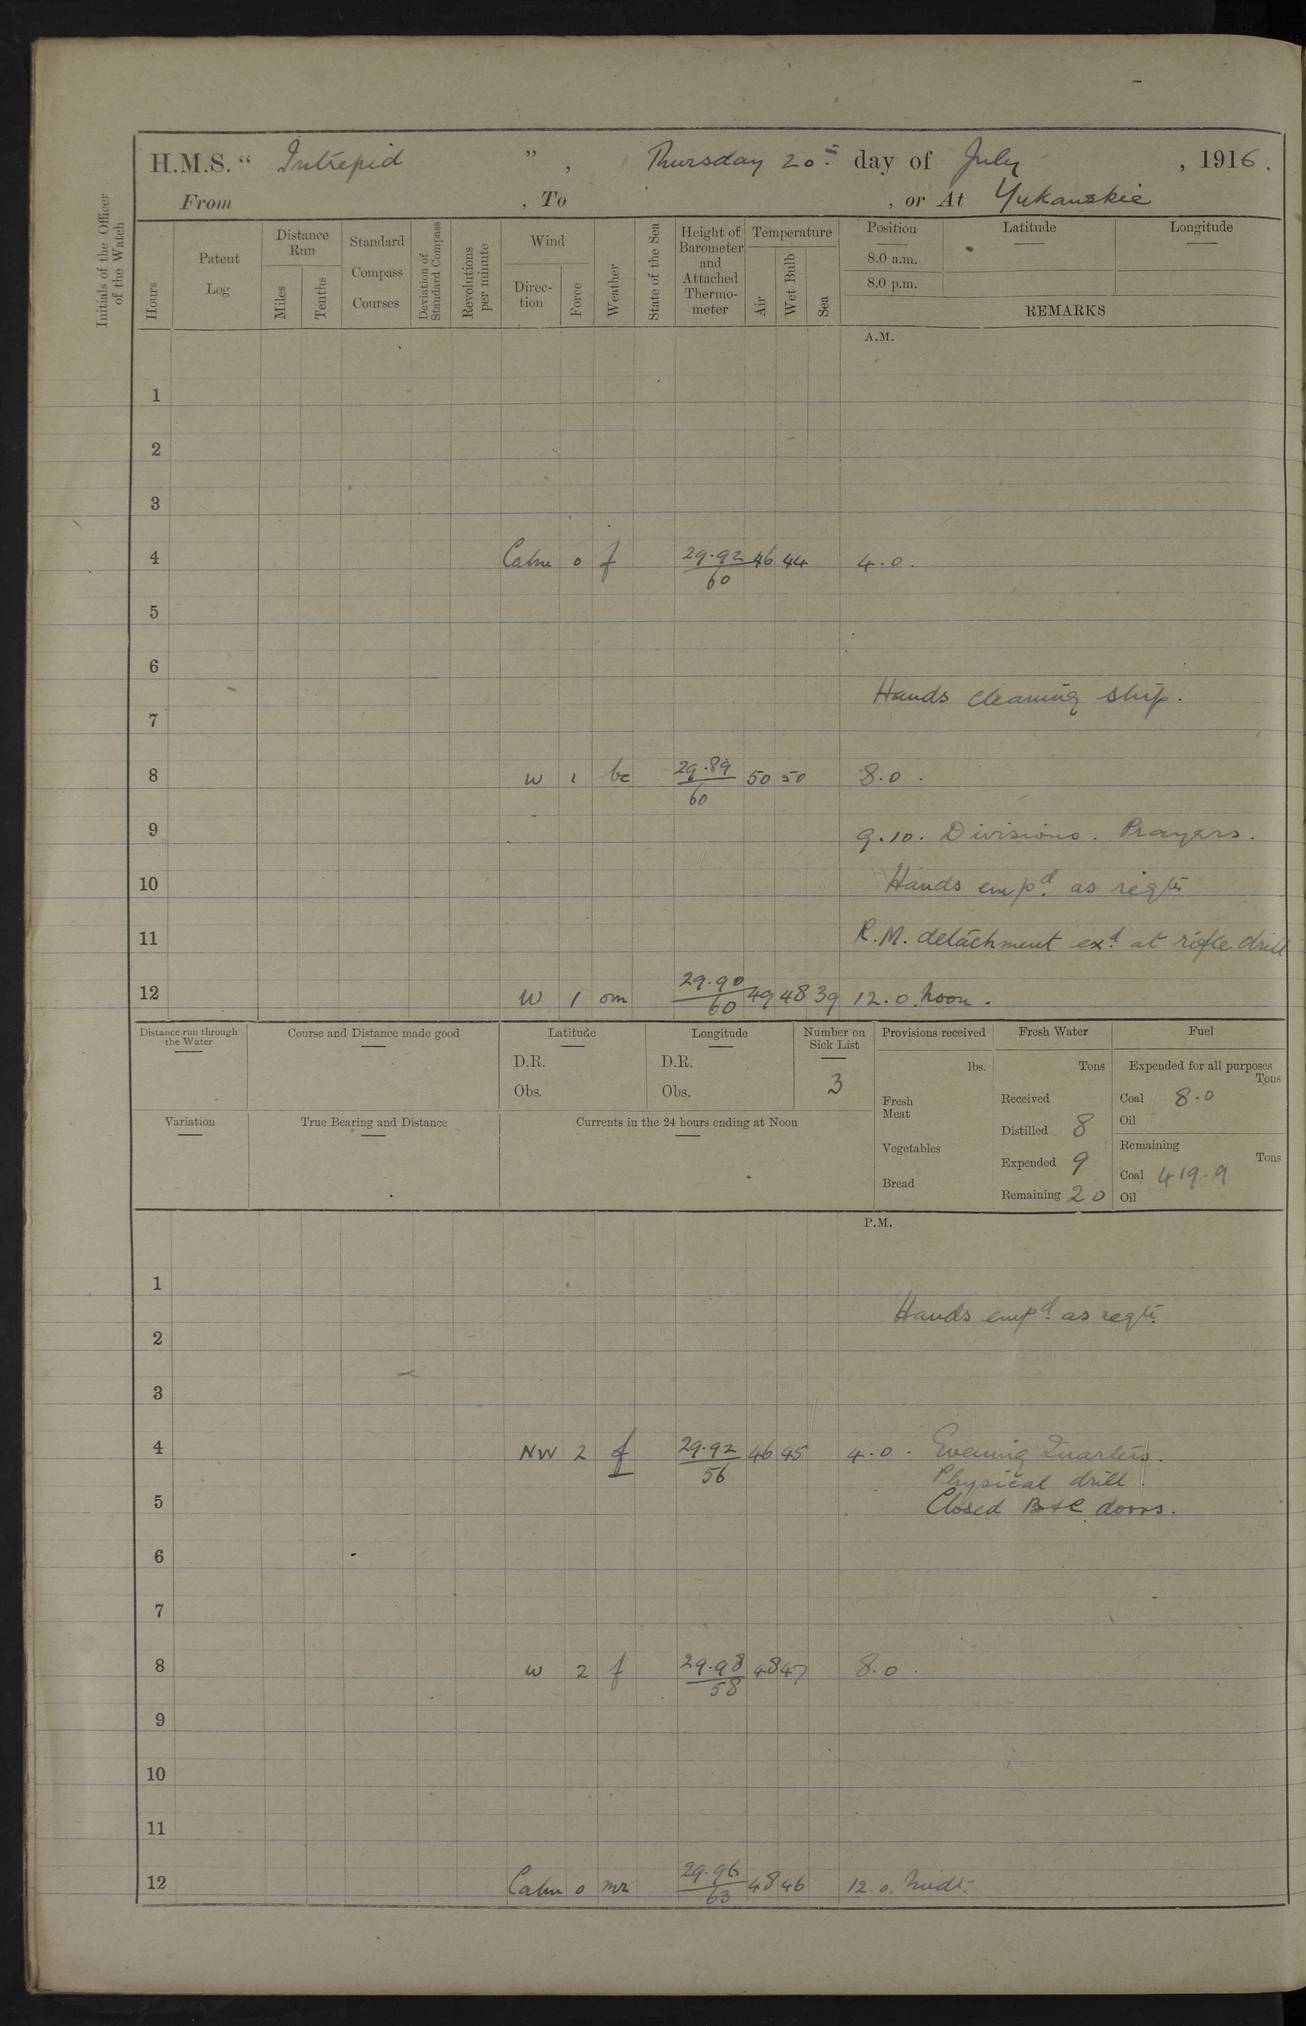 H.M.S. “ Intrepid ” , Thursday 20th day of July , 1916.
From , To , or At Yukanskie
Initials of the Officer of the Watch
Hours
Patent Log
Distance Run
Miles
Tenths
Standard Compass Courses
Deviation of Standard Compass
Revolutions per minute
Wind
Direction
Force
Weather
State of the Sea
Height of Barometer and Attached Thermometer
Temperature
Air
Wet Bulb
Sea
Position
8.0 a.m.
8.0 p.m.
Latitude
Longitude
REMARKS
A.M.
1
2
3
4 Calm 0 f 29.92/60 46 44 4.0.
5
6
Hands cleaning ship.
7
8 W 1 bc 29.89/60 50 50 8.0.
9 9.10. Divisions. Prayers.
10 Hands empd. as reqte
11 R.M. detachment exd. at rifle drill
12 W 1 om 29.90/60 49 48 39 12.0. Noon.
Distance run through the Water
Course and Distance made good
Latitude
D.R.
Obs.
Longitude
D.R.
Obs.
Number on Sick List
3
Variation
True Bearing and Distance
Currents in the 24 hours ending at Noon
Provisions received
lbs.
Fresh Meat
Vegetables
Bread
Fresh Water
Tons
Received
Distilled 8
Expended 9
Remaining 20
Fuel
Expended for all purposes
Tons
Coal 8.0
Oil
Remaining
Tons
Coal 419.9
Oil
P.M.
1
Hands empd. as reqte.
2
3
4 NW 2 f 29.92/56 46 45 4.0. Evening Quarters.
Physical drill.
5 Closed B+C doors.
6
7
8 W 2 f 29.98/58 48 47 8.0.
9
10
11
12 Calm 0 mr 29.96/63 48 46 12.0. Midt.